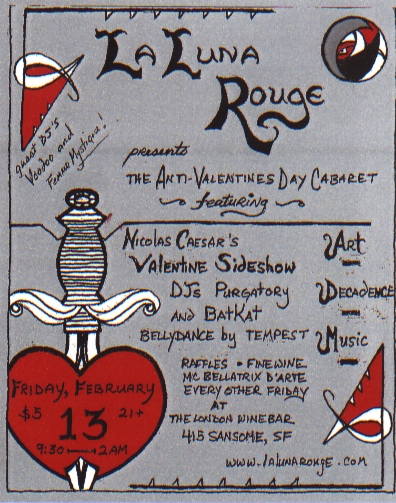 La Luna
Rouge
guest DJ's
Voodoo and
Femme Mystique!
presents
THE ANTI-VALENTINES DAY CABARET
featuring
NICOLAS CAESAR'S
VALENTINE SIDESHOW
DJs PURGATORY
AND BATKAT
BELLYDANCE by TEMPEST
Art
DECADENCE
Music
RAFFLES • FINE WINE
MC BELLATRIX D'ARTE
EVERY OTHER FRIDAY
AT
THE LONDON WINEBAR
415 SANSOME, SF
www.lalunarouge.com
FRIDAY, FEBRUARY
$5 13 21+
9:30 → 2AM